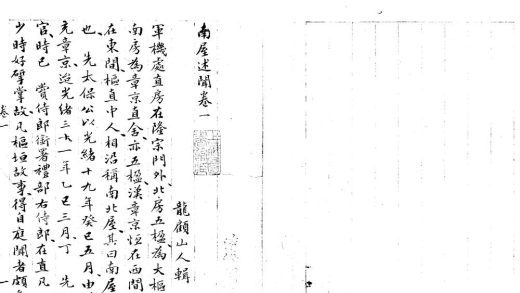 南屋述聞卷一
龍顧山人輯
軍機處直房在隆宗門外北房五楹為大樞
南房為章京直舍亦五楹漢章京恒在西間
在東間樞直中人相沿稱南北屋其曰南屋
也先太保公以光緒十九年癸巳五月由
充章京迨光緒三十一年乙巳三月丁先
官時已賞侍郎銜署禮部右侍郎在直凡
少時好擘掌故凡樞垣故事得自庭聞者頗
卷一
一